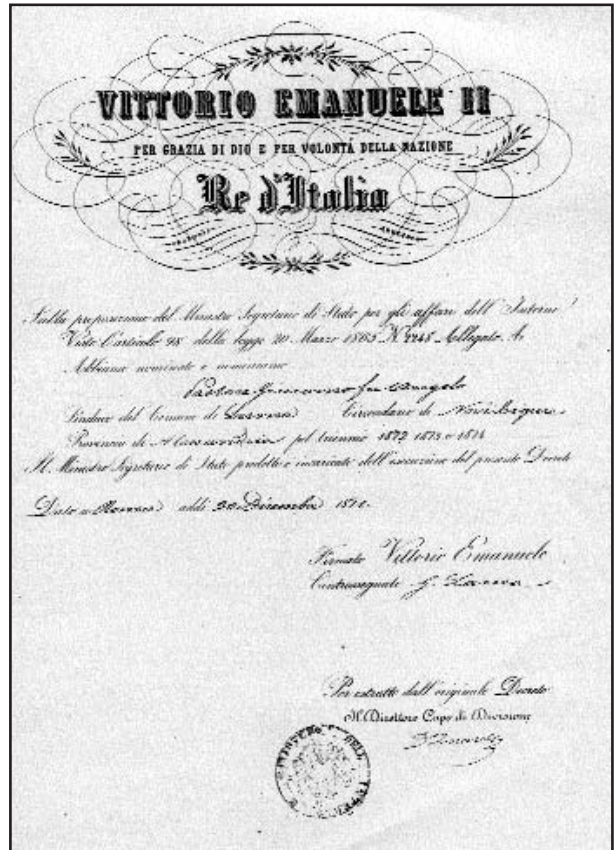 VITTORIO EMANUELE II
PER GRAZIA DI DIO E PER VOLONTÀ DELLA NAZIONE
Re d'Italia
Sulla proposizione del Ministro Segretario di Stato per gli affari dell'Interno
Visto l'articolo 98 della legge 20 Marzo 1865 N. 2248 Allegato A
Abbiamo nominato e nominiamo
fu Angelo
Sindaco del Comune di Circondario di Novi Ligure
Provincia di Alessandria pel triennio 1872 1873 e 1874
Il Ministro Segretario di Stato predetto è incaricato dell'esecuzione del presente Decreto
Dato a Roma addì 30 Dicembre
Firmato Vittorio Emanuele
Contrassegnato G. Lanza
Per estratto dall'originale Decreto
Il Direttore Capo di Divisione
MINISTERO DELL'INTERNO